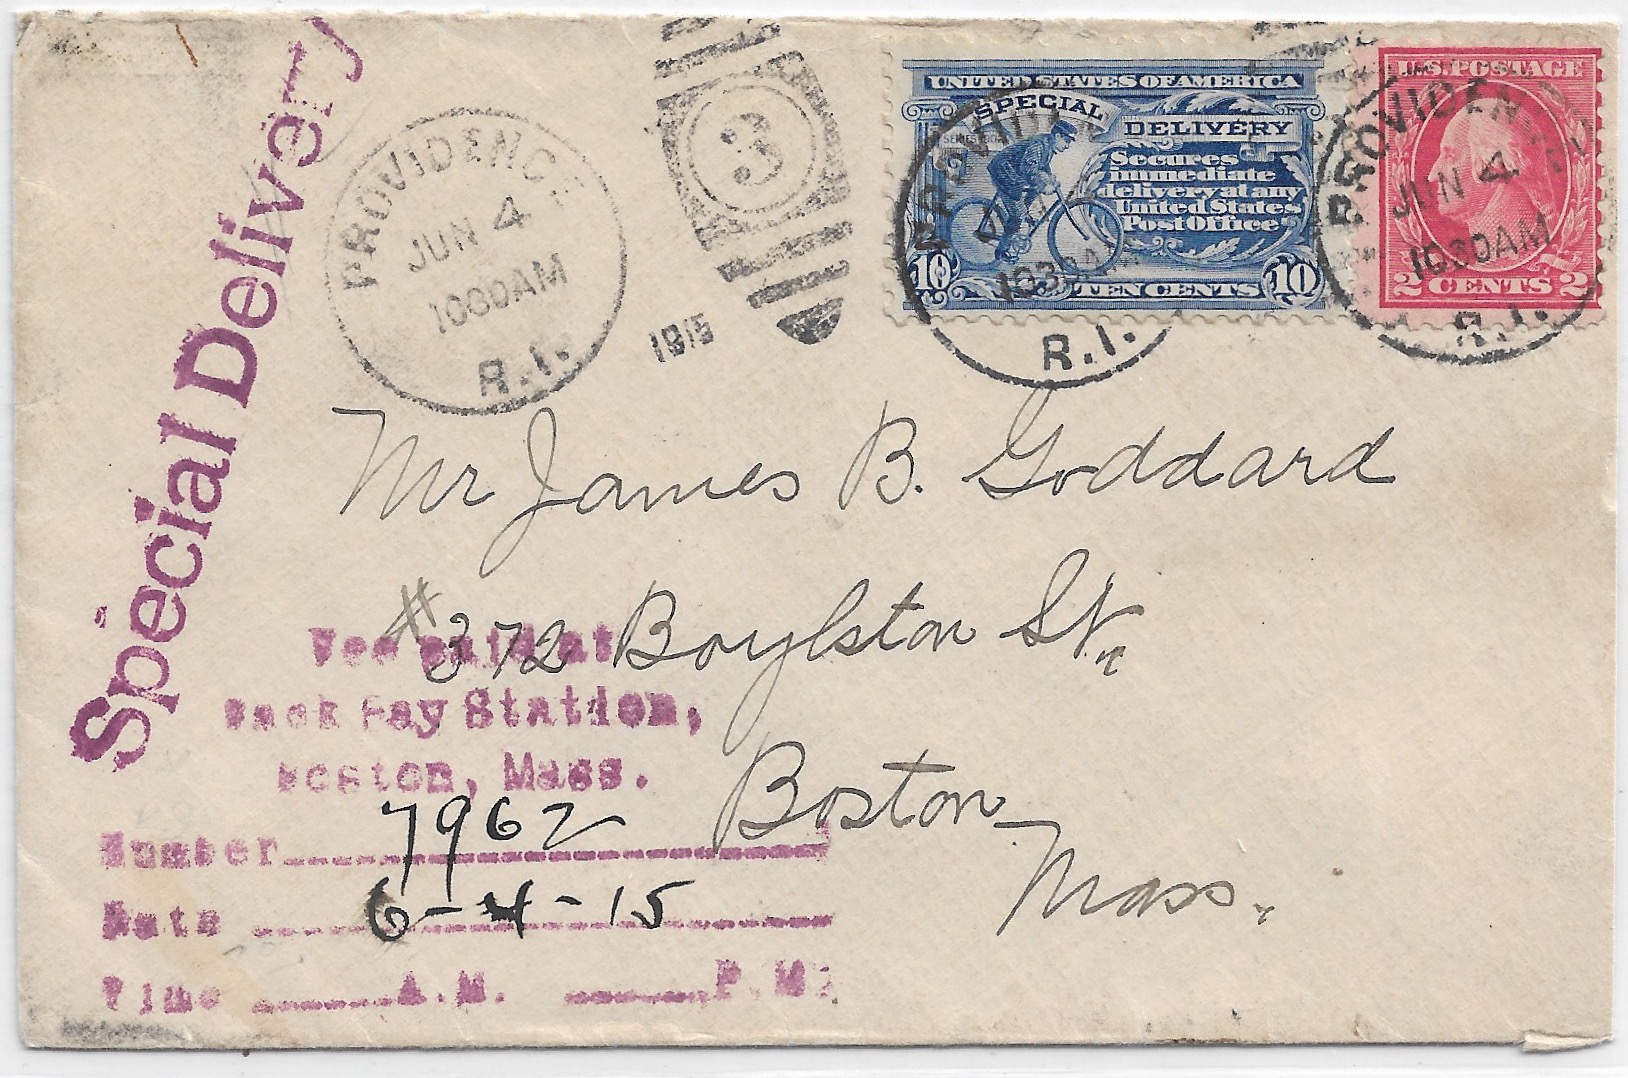 Special Delivery
PROVIDENCE
JUN 4
1030AM
R.I.
3
1915
UNITED STATES OF AMERICA
SPECIAL
DELIVERY
Secures
immediate
delivery at any
United States
Post Office
10 TEN CENTS 10
PROVIDEN
1030AM
R.I.
U.S. POSTAGE
2 CENTS 2
PROVIDEN
JUN 4
1030AM
R.I.
Mr James B. Goddard
#372 Boylston St.,
Boston
Mass.
Fee paid at
Back Bay Station,
Boston, Mass.
Number 7962
Date 6-4-15
Time A.M. P.M.